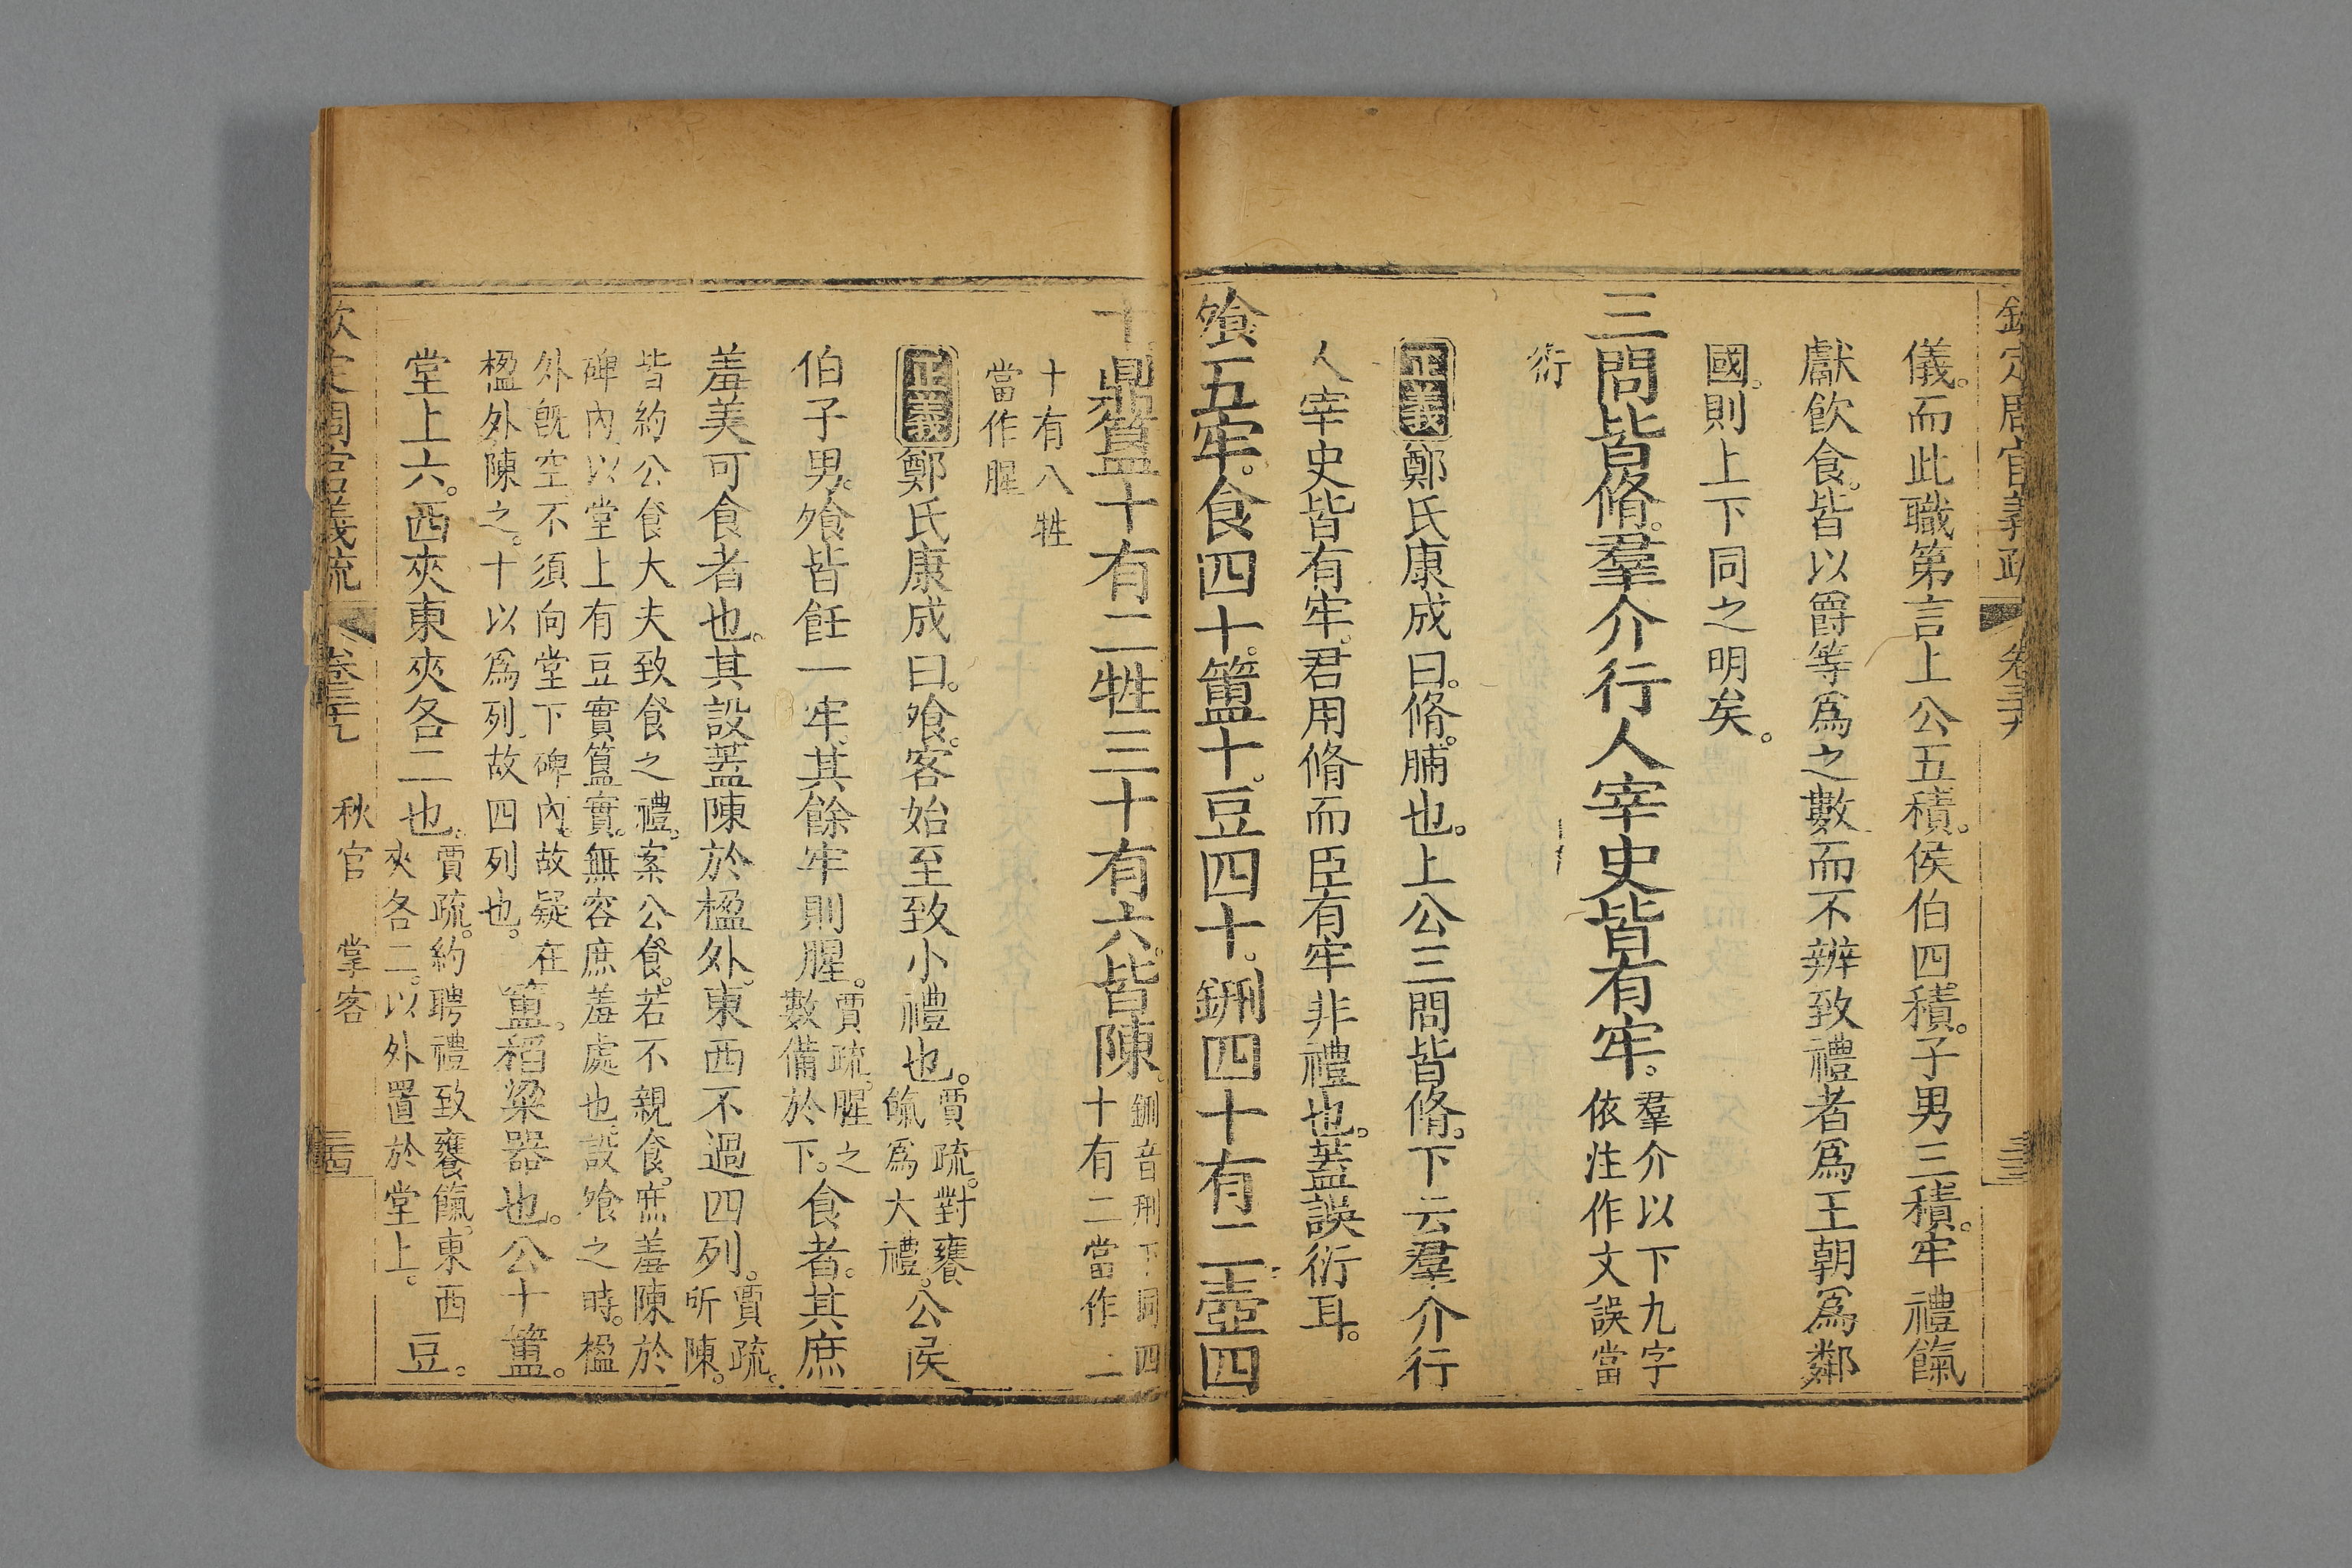 儀。而此職第言上公五積。侯伯四積。子男三積。牢禮餼
獻飲食。皆以爵等爲之數。而不辨致禮者爲王朝爲鄰
國。則上下同之明矣。
三問皆脩。羣介行人宰史皆有牢。
羣介以下九字
依注作文誤當
衍
正義鄭氏康成曰。脩。脯也。上公三問皆脩。下云羣介行
人宰史皆有牢。君用脩而臣有牢非禮也。蓋誤衍耳。
飧五牢。食四十。簠十。豆四十。鉶四十有二。壺四
十。鼎簋十有二。牲三十有六。皆陳。
鉶音刑下同四
十有二當作二
十有八牲
當作腥
正義鄭氏康成曰。飧。客始至致小禮也。
賈疏。對饔
餼爲大禮。
公侯
伯子男。飧皆飪一牢。其餘牢則腥。
賈疏。腥之
數備於下。
食者。其庶
羞美可食者也。其設蓋陳於楹外。東西不過四列。
賈疏。
所陳。
皆約公食大夫致食之禮。案公食。若不親食。庶羞陳於
碑內。以堂上有豆實簋實。無容庶羞處也。設飧之時。楹
外旣空。不須向堂下碑內。故疑在
楹外陳之。十以爲列。故四列也。
簠。稻粱器也。公十簠。
堂上六。西夾東夾各二也。
賈疏。約聘禮致饔餼。東西
夾各二。以外置於堂上。
豆。
秋官
掌客